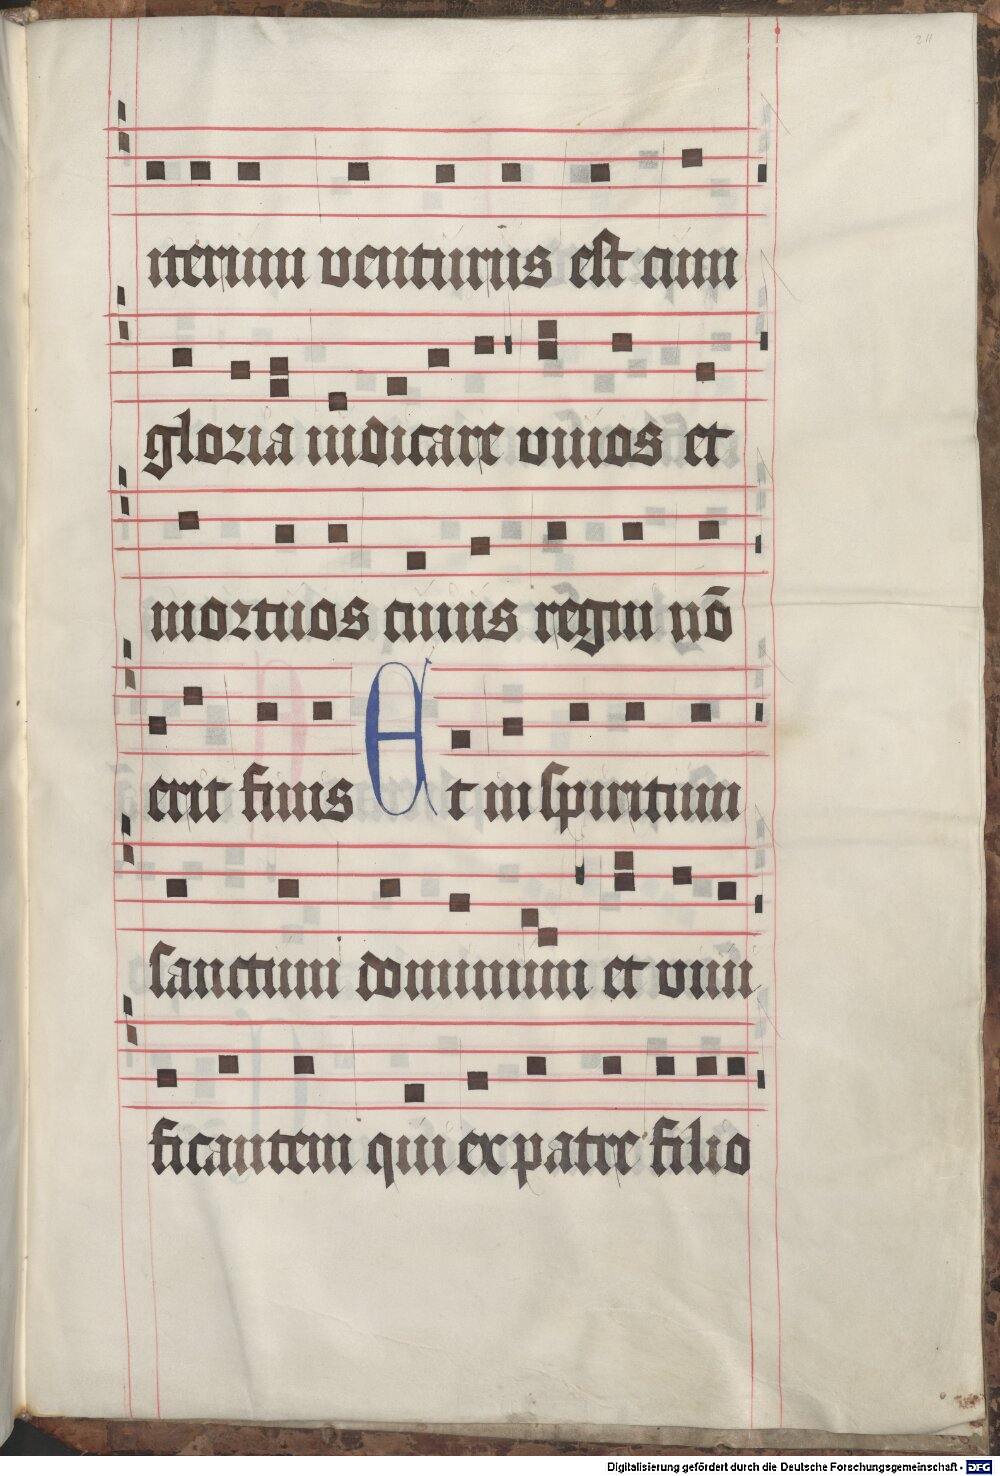 211
iterum venturus est cum
gloria iudicare viuos et
mortuos cuius regni nō
erit finis Et in spiritum
sanctum dominum et viui
ficantem qui ex patre filio
Digitalisierung gefördert durch die Deutsche Forschungsgemeinschaft - DFG